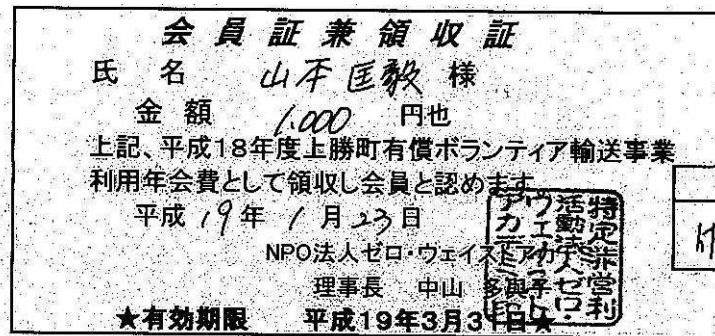 会員証兼領収証
氏 名 山本匡毅 様
金 額 1,000 円也
上記、平成18年度上勝町有償ボランティア輸送事業
利用年会費として領収し会員と認めます
平成 19年 1月 23日
NPO法人ゼロ・ウェイストアカデミー
理事長 中山 多與子
★有効期限 平成19年3月31日★
特定非営利
活動法人ゼロ・
ウェイスト
アカデミー印